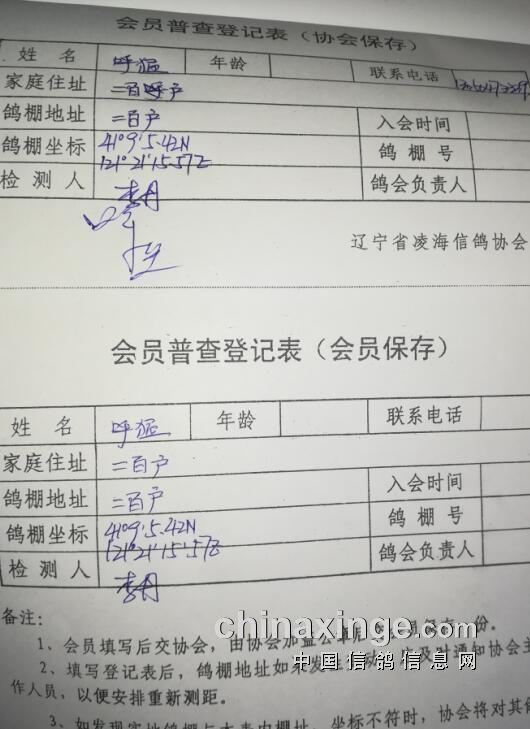 会员普查登记表（协会保存）
姓 名 呼猛 年龄 联系电话
家庭住址 二百户
鸽棚地址 二百户 入会时间
鸽棚坐标 41°9'5.42N 鸽 棚 号
121°21'15.57E
检 测 人 鸽会负责人
辽宁省凌海信鸽协会
会员普查登记表（会员保存）
姓 名 呼猛 年龄 联系电话
家庭住址 二百户
鸽棚地址 二百户 入会时间
鸽棚坐标 41°9'5.42N 鸽 棚 号
121°21'15.57E
检 测 人 鸽会负责人
备注：
1、会员填写后交协会，由协会加盖公章后
份。
chinaxinge.com
2、填写登记表后，鸽棚地址如
及时通知协会
中国信鸽信息网
作人员，以便安排重新测距。
3、如发现实地鸽棚与本表内棚址、坐标不符时，协会将对其